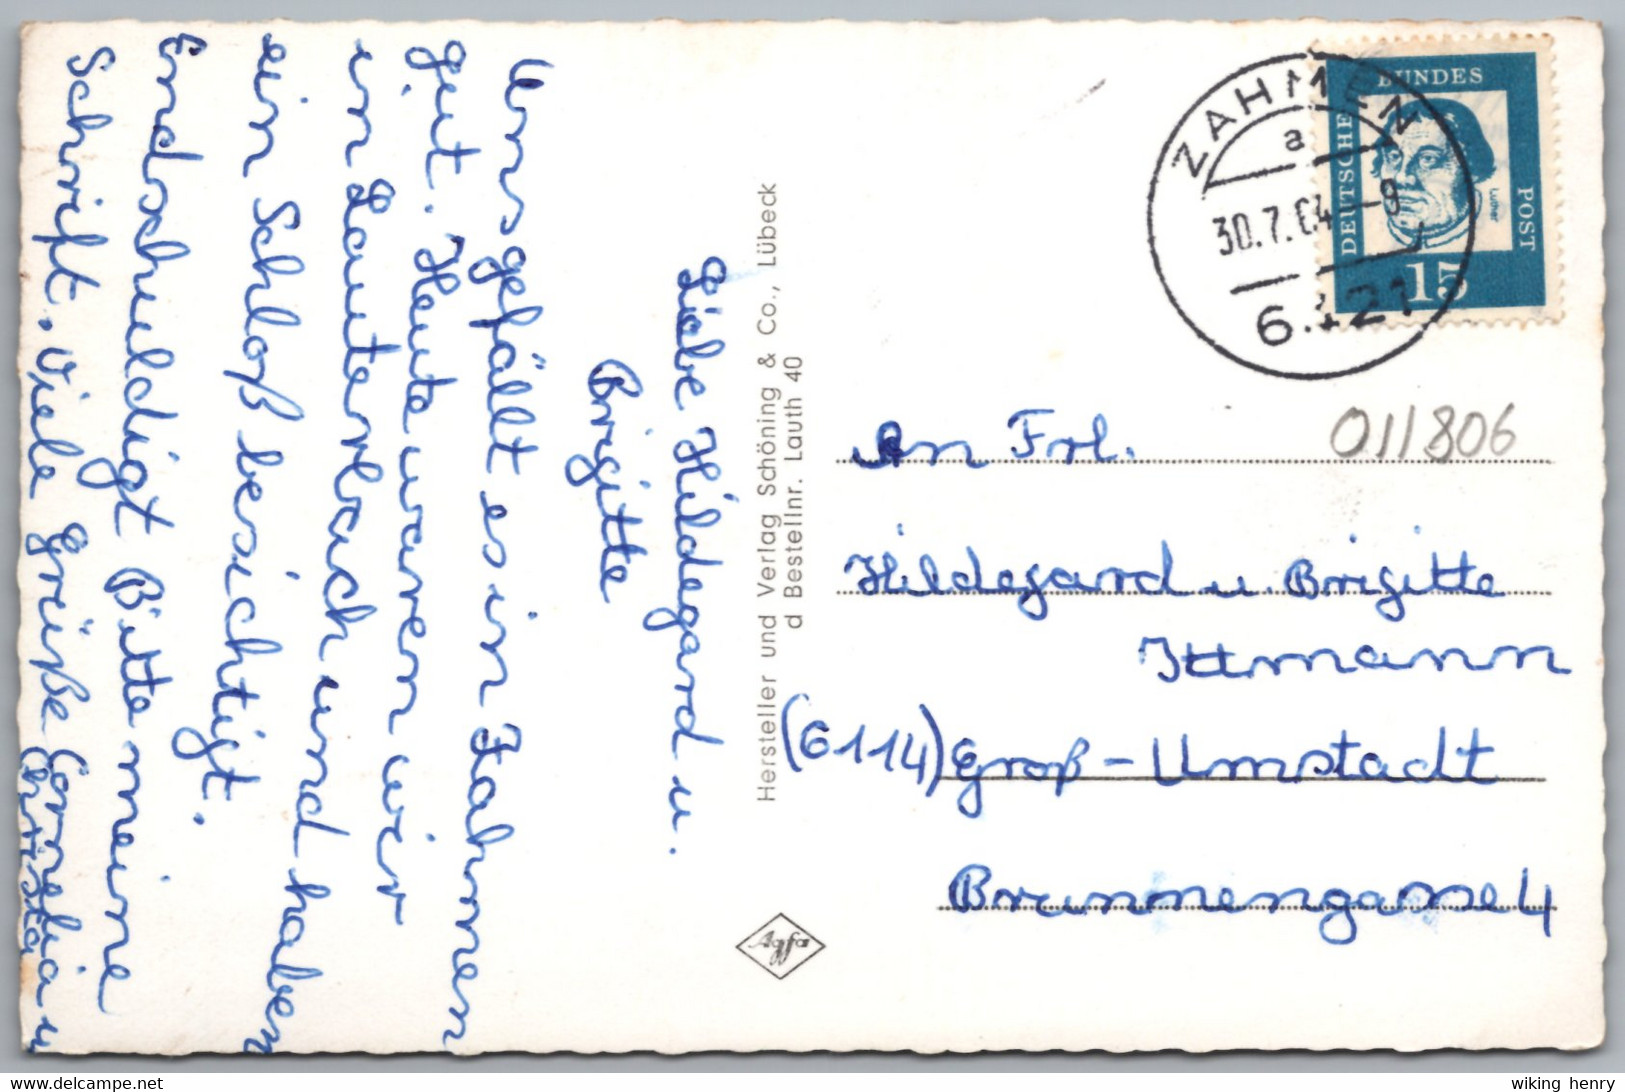 Liebe Hildegard u.
Brigitte
Uns gefällt es in Zahmen
gut. Heute waren wir
in Lauterbach und haben
ein Schloß besichtigt.
Endschuldigt Bitte meine
Schrift. Viele Grüße Cornelia u
Christa
Hersteller und Verlag Schöning & Co., Lübeck
d Bestellnr. Lauth 40
Agfa
ZAHMEN
a
30.7.64–9
6421
DEUTSCHE BUNDES POST
Luther
15
011806
An Frl.
Hildegard u. Brigitte
Ittmann
(6114) Groß-Umstadt
Brunnengasse 4
www.delcampe.net
wiking henry